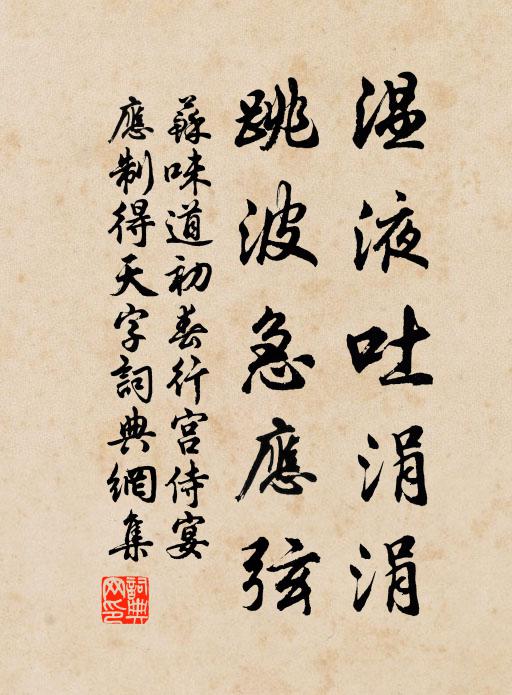 温液吐涓涓
跳波急應弦
蘇味道初春行宮侍宴
應制得天字詞典網集
詞典
网印